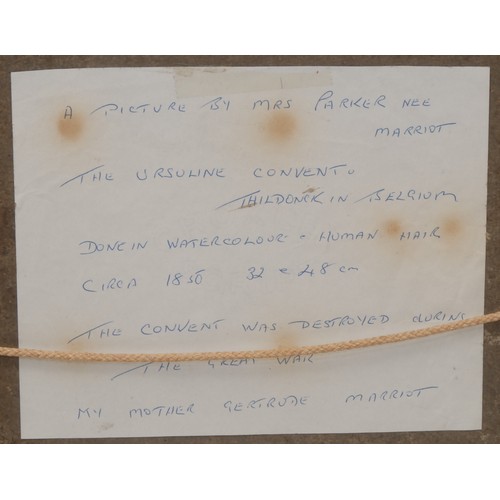 A PICTURE BY MRS PARKER NEE
MARRIOT
THE URSULINE CONVENT.
THILDONCK IN BELGIUM
DONE IN WATERCOLOUR - HUMAN HAIR
CIRCA 1850 32 x 48 cm
THE CONVENT WAS DESTROYED DURING
THE GREAT WAR
MY MOTHER GERTRUDE MARRIOT